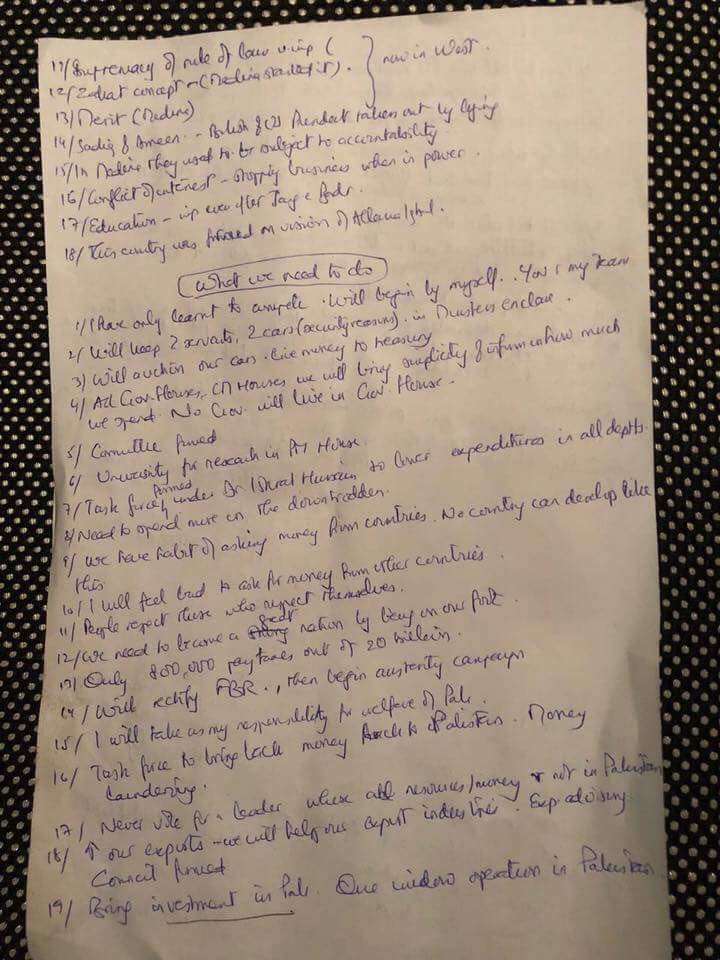 11/ Supremacy of rule of law (
12/ Zakat concept – (Medina State did it).  } now in West.
13/ Merit (Medina)
14/ Sadiq & Ameen. – British taken out by lying
15/ In Medina they used to be subject to accountability
16/ Conflict of interest – stopping business when in power.
17/ Education – even after Jang e Badr.
18/ This country was formed on vision of Allama Iqbal.
What we need to do
1/ I have only learnt to compete. Will begin by myself. You & my team
2/ Will keep 2 servants, 2 cars (security reasons). in Ministers enclave.
3) Will auction our cars. Give money to treasury
4/ All Gov. Houses, CM Houses we will bring simplicity & inform on how much
we spend. No Gov. will live in Gov. House.
5/ Committee formed
6/ University for research in PM House.
7/ Task force formed under Dr Ishrat Hussain to lower expenditures in all depts.
8/ Need to spend more on the downtrodden.
9/ We have habit of asking money from countries. No country can develop like
this
10/ I will feel bad to ask for money from other countries.
11/ People respect those who respect themselves.
12/ We need to become a great nation by being on our feet.
13) Only 800,000 pay taxes out of 20 million.
14/ Will rectify FBR., then begin austerity campaign
15/ I will take as my responsibility for welfare of Pak.
16/ Task force to bring back money back to Pakistan. Money
laundering.
17/ Never vote for a leader whose all resources/money not in Pakistan
18/ ↑ our exports – we will help our export industries. Exp advisory
Council formed
19/ Bring investment in Pak. One window operation in Pakistan